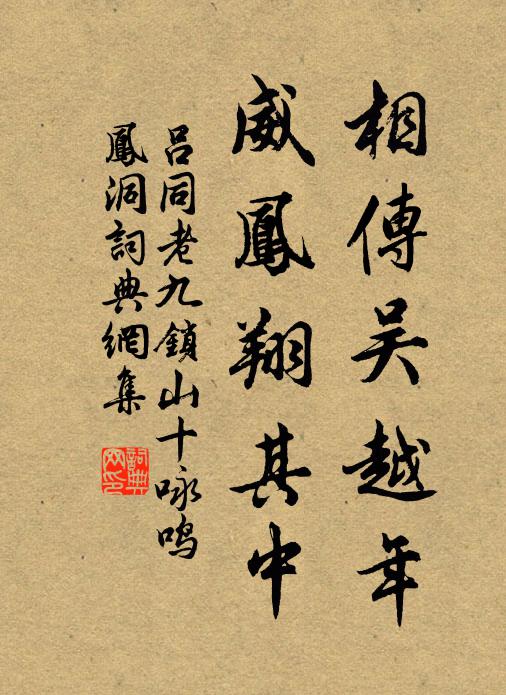 相傳吴越年
威鳳翔其中
呂同老九鎖山十咏鸣
鳳洞詞典網集
詞典网印